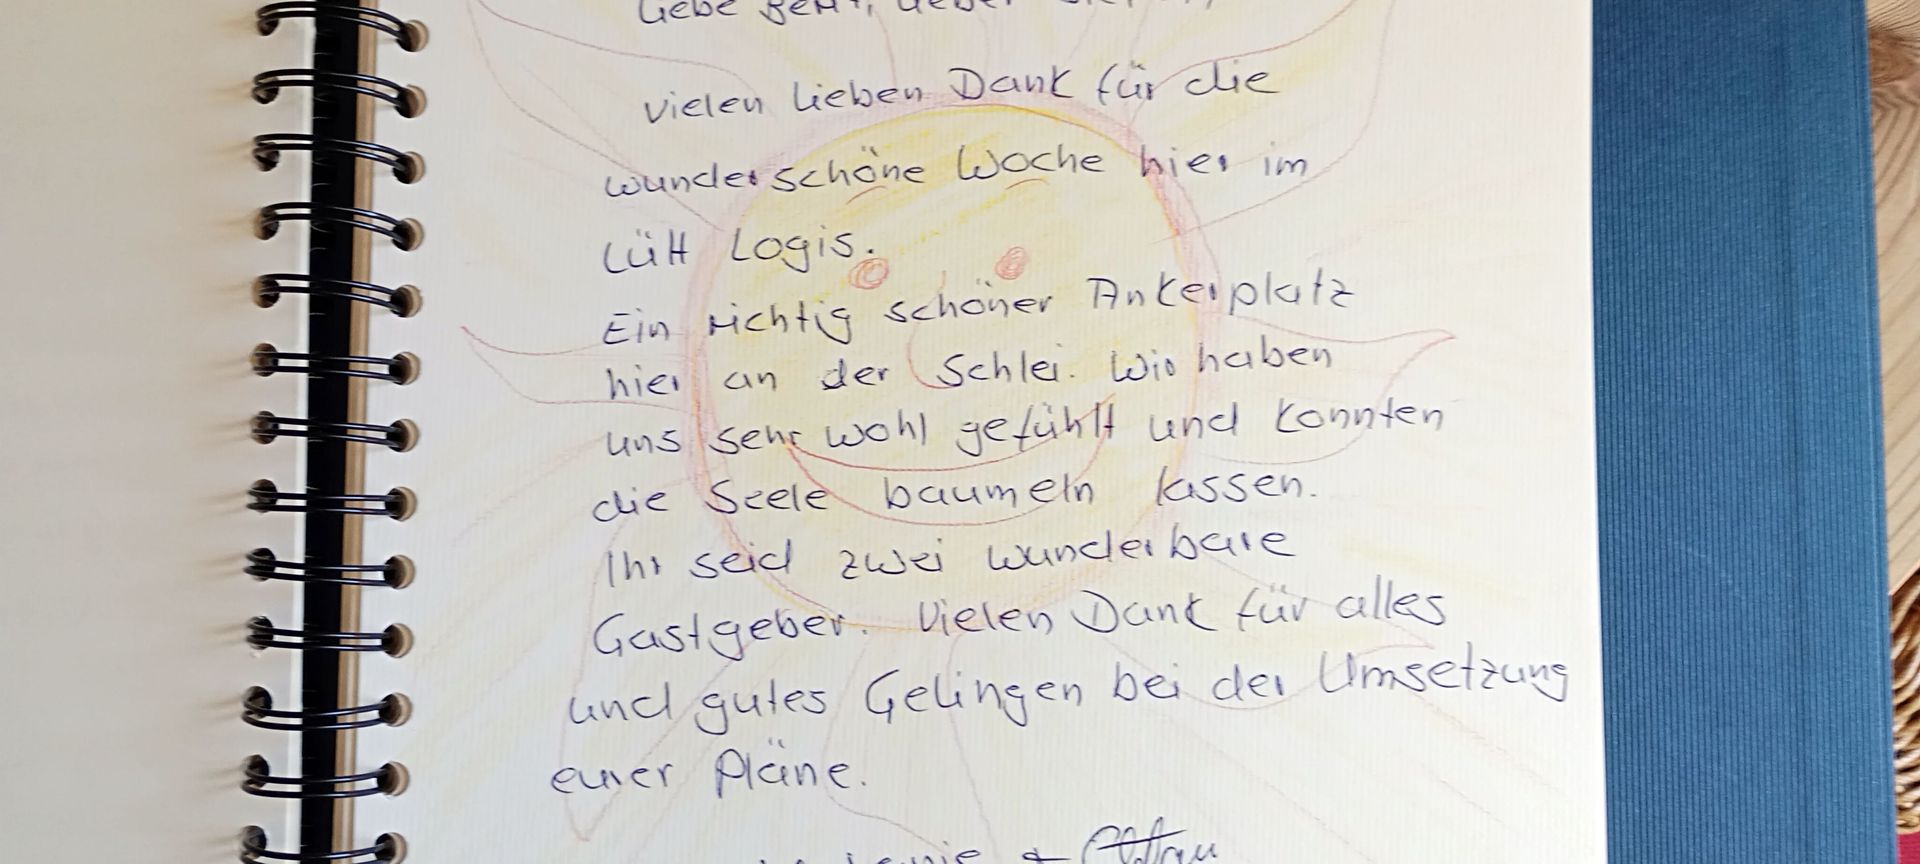 Liebe
vielen lieben Dank für die
wunderschöne Woche hier im
Lütt Logis.
Ein richtig schöner Ankerplatz
hier an der Schlei. Wir haben
uns sehr wohl gefühlt und konnten
die Seele baumeln lassen.
Ihr seid zwei wunderbare
Gastgeber. Vielen Dank für alles
und gutes Gelingen bei der Umsetzung
eurer Pläne.
&